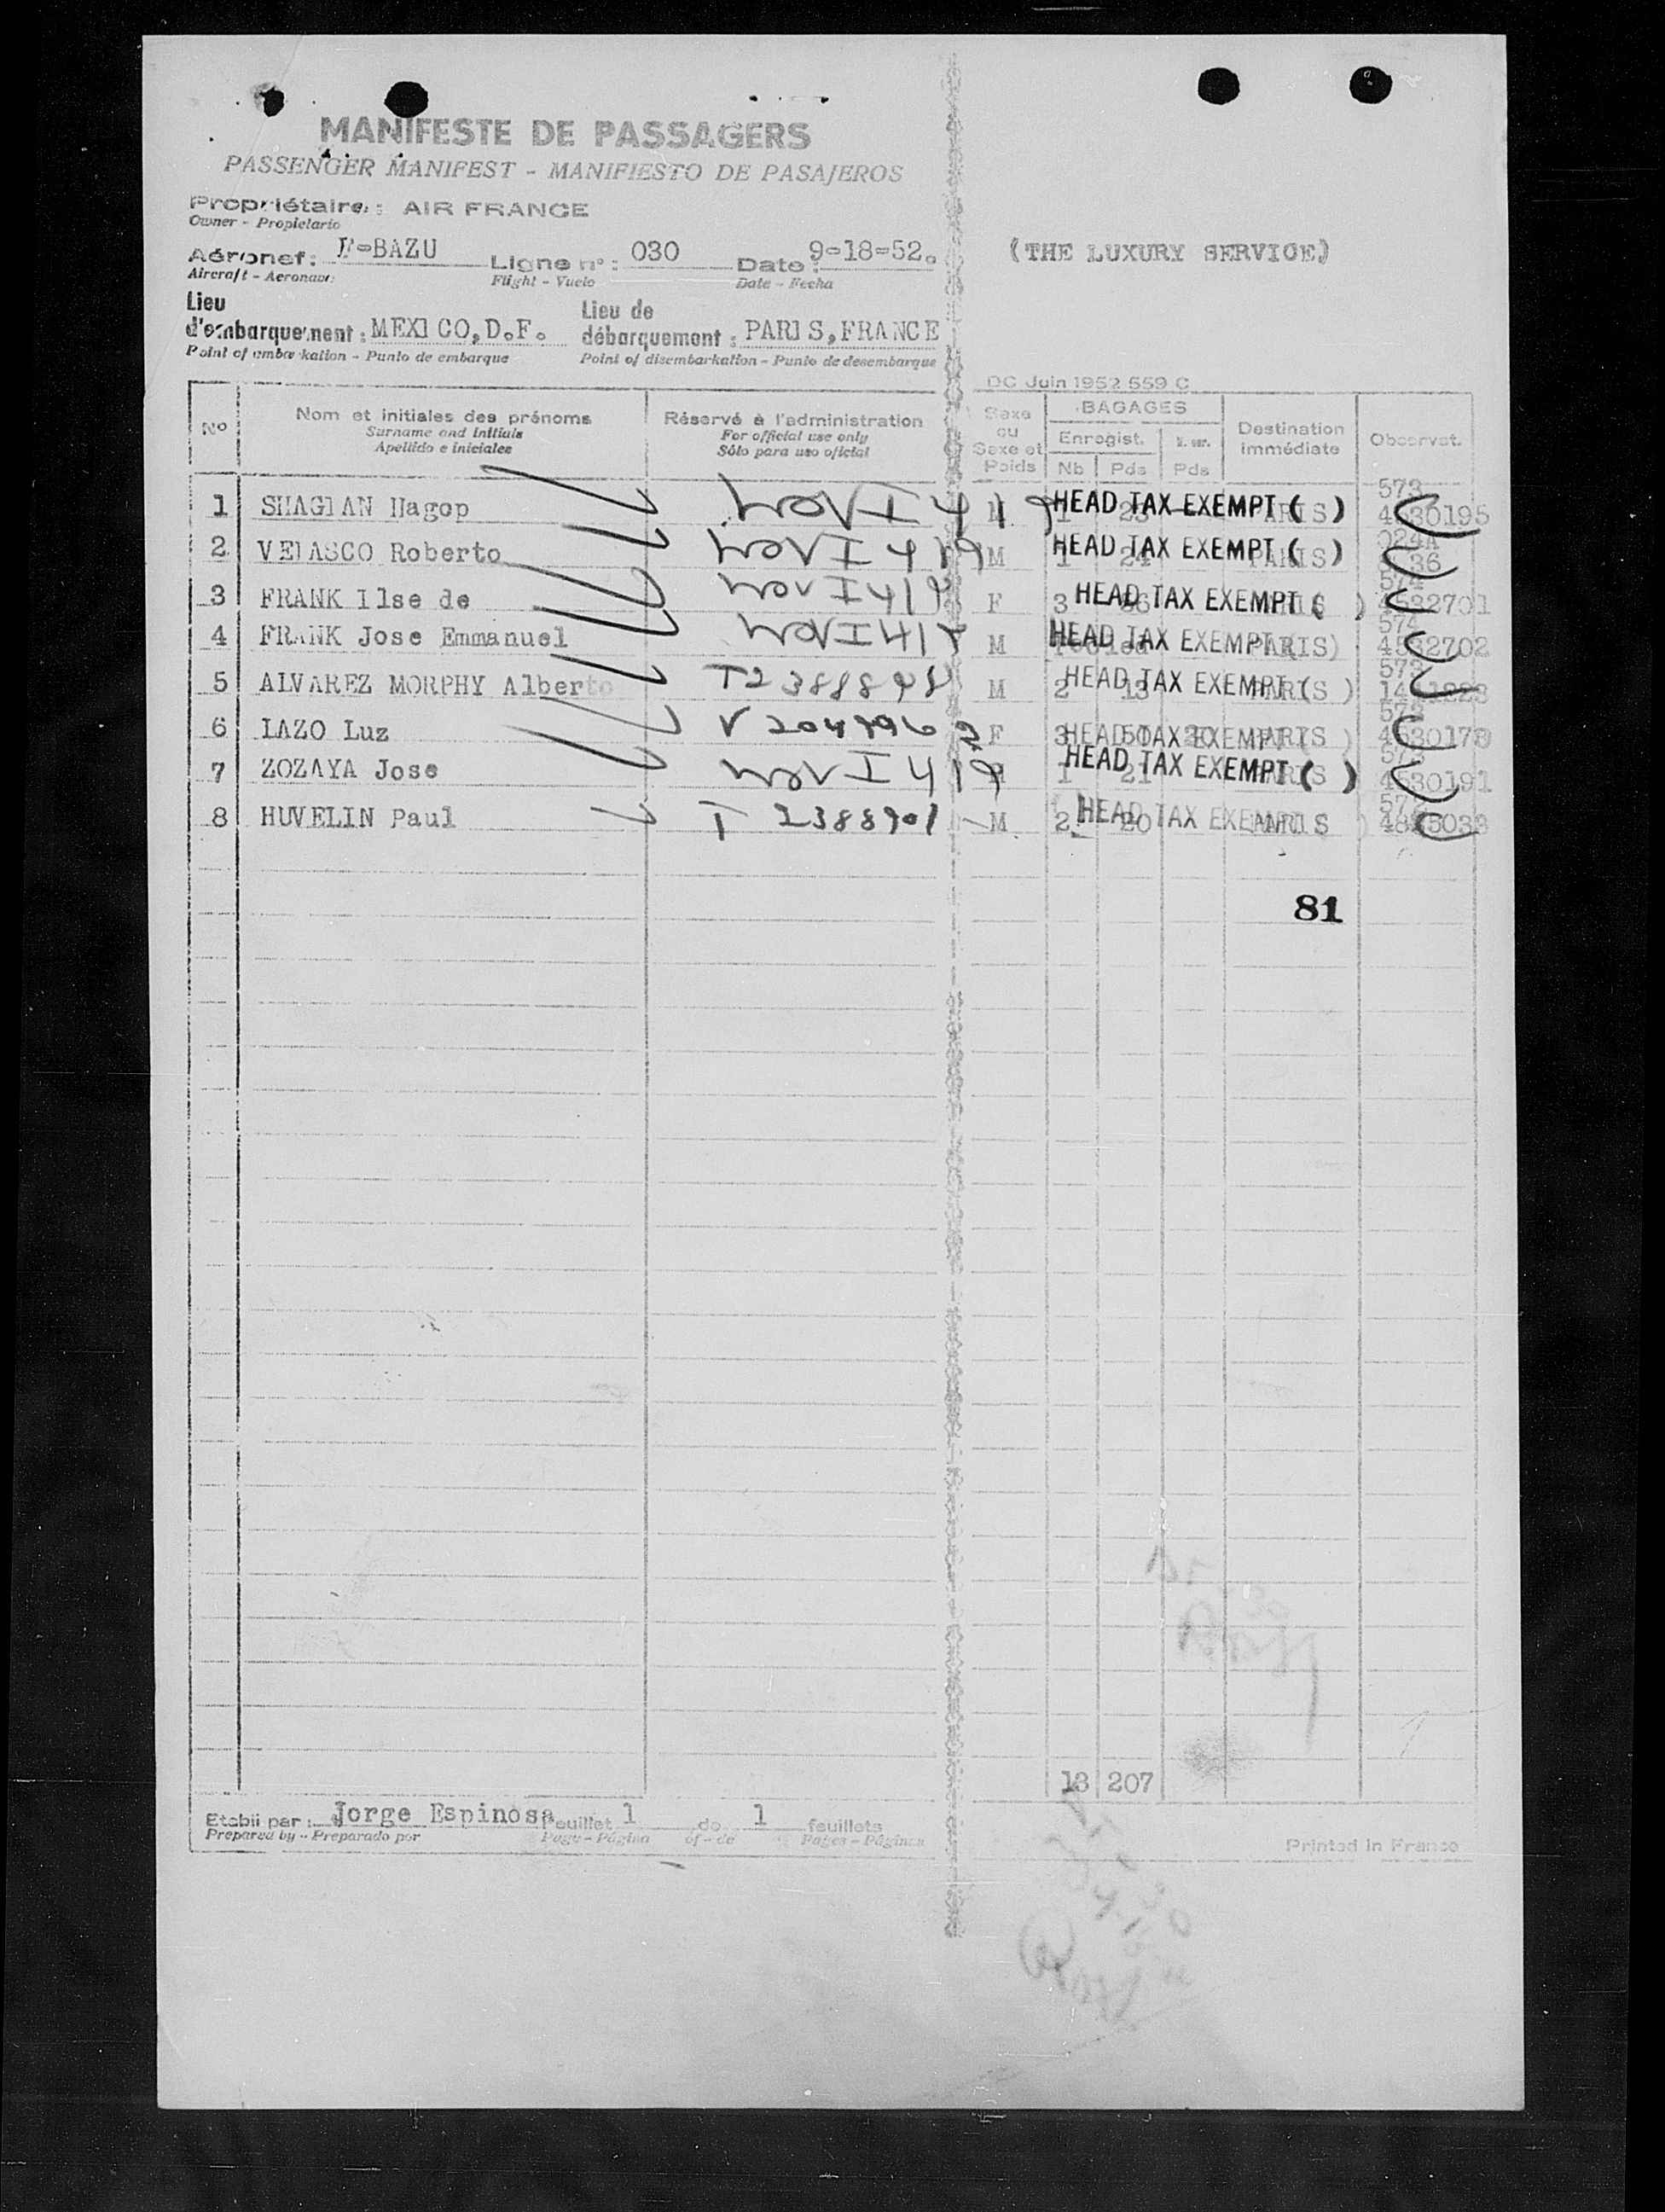 MANIFESTE DE PASSAGERS
PASSENGER MANIFEST - MANIFIESTO DE PASAJEROS
Propriétaire: AIR FRANCE
Owner - Propietario
Aéronef: F-BAZU Ligne n°: 030 Date: 9-18-52.
Aircraft - Aeronave Flight - Vuelo Date - Fecha
(THE LUXURY SERVICE)
Lieu d'embarquement: MEXICO, D.F. Lieu de débarquement: PARIS, FRANCE
Point of embarkation - Punto de embarque Point of disembarkation - Punto de desembarque
DC Juin 1952 559 C
N° Nom et initiales des prénoms Réservé à l'administration Sexe ou Sexe et Poids BAGAGES Destination immédiate Observat.
Surname and Initials For official use only Enregist.
Apellido e iniciales Sólo para uso oficial Nb Pds Pds
1 SHAGIAN Hagop I 419 1 23 HEAD TAX EXEMPT ( ) 573 4530195
2 VELASCO Roberto I 419 M 1 24 HEAD TAX EXEMPT ( ) PARIS 024A
3 FRANK Ilse de I 419 F 3 HEAD TAX EXEMPT ( ) 574 4532701
4 FRANK Jose Emmanuel I 419 M HEAD TAX EXEMPT PARIS) 574 4532702
5 ALVAREZ MORPHY Alberto T2388898 M 2 13 HEAD TAX EXEMPT ( ) PARIS 573
6 LAZO Luz V 2047969 F 3 50 HEAD TAX EXEMPT ( ) PARIS 573 4530178
7 ZOZAYA Jose I 419 1 21 HEAD TAX EXEMPT ( ) 573 4530191
8 HUVELIN Paul T 2388901 M 2 20 HEAD TAX EXEMPT PARIS 572
81
13 207
Etabli par: Jorge Espinosa feuillet 1 de 1 feuillets
Prepared by - Preparado por Page - Página of - de Pages - Páginas
Printed in France